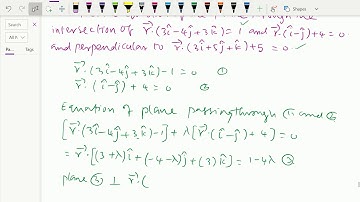 Shapes
intersection of r⃗·(3î-4ĵ+3k̂)=1 and r⃗·(î-ĵ)+4=0
and perpendicular to r⃗·(3î+5ĵ+k̂)+5=0
r⃗·(3î-4ĵ+3k̂)-1=0 ①
r⃗·(î-ĵ)+4=0 ②
Equation of plane passing through ① and ②
[r⃗·(3î-4ĵ+3k̂)-1]+λ[r⃗·(î-ĵ)+4]=0
=r⃗·[(3+λ)î+(-4-λ)ĵ+(3)k̂]=1-4λ ③
plane ③ ⊥ r⃗·(